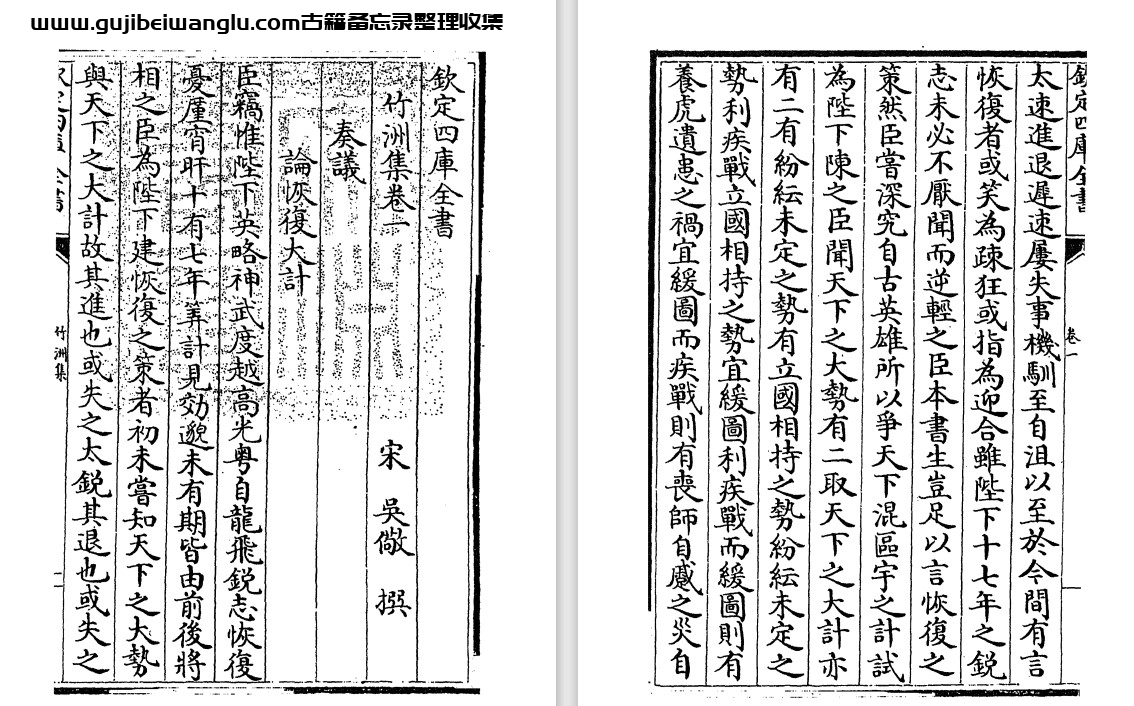 www.gujibeiwanglu.com古籍备忘录整理收集
欽定四庫全書
竹洲集卷一
宋 吳儆 撰
奏議
論恢復大計
臣竊惟陛下英略神武度越高光粤自龍飛鋭志恢復
憂厪宵旰十有七年筭計見効邈未有期皆由前後將
相之臣為陛下建恢復之策者初未嘗知天下之大勢
與天下之大計故其進也或失之太鋭其退也或失之
欽定四庫全書
竹洲集
一
欽定四庫全書
卷一
太速進退遲速屢失事機馴至自沮以至於今間有言
恢復者或笑為疎狂或指為迎合雖陛下十七年之鋭
志未必不厭聞而逆輕之臣本書生豈足以言恢復之
策然臣嘗深究自古英雄所以爭天下混區宇之計試
為陛下陳之臣聞天下之大勢有二取天下之大計亦
有二有紛紜未定之勢有立國相持之勢紛紜未定之
勢利疾戰立國相持之勢宜緩圖利疾戰而緩圖則有
養虎遺患之禍宜緩圖而疾戰則有喪師自蹙之災自